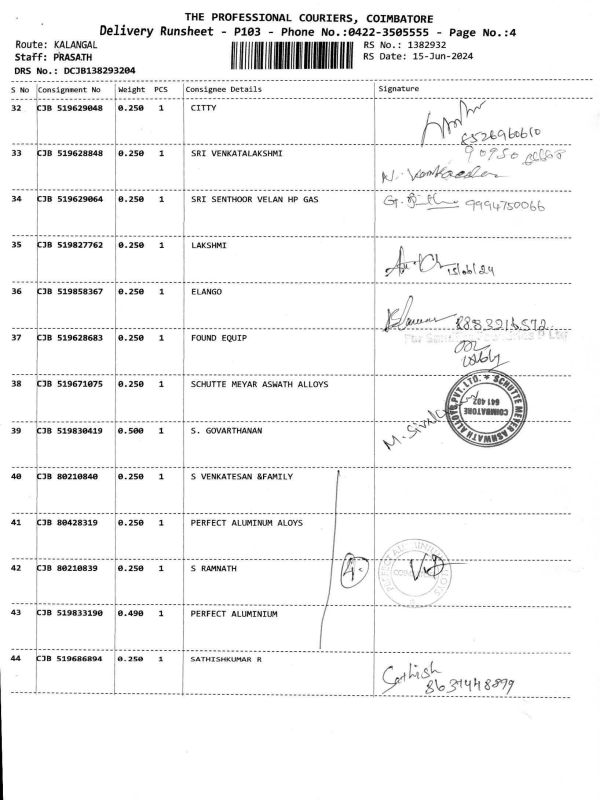 THE PROFESSIONAL COURIERS, COIMBATORE
Delivery Runsheet - P103 - Phone No.:0422-3505555 - Page No.:4
Route: KALANGAL
RS No.: 1382932
Staff: PRASATH
RS Date: 15-Jun-2024
DRS No.: DCJB138293204
S No Consignment No Weight PCS Consignee Details Signature
32 CJB 519629048 0.250 1 CITTY
8526960610
33 CJB 519628848 0.250 1 SRI VENKATALAKSHMI
34 CJB 519629064 0.250 1 SRI SENTHOOR VELAN HP GAS
9994750066
35 CJB 519827762 0.250 1 LAKSHMI
15/06/24
36 CJB 519858367 0.250 1 ELANGO
8883216572
37 CJB 519628683 0.250 1 FOUND EQUIP
38 CJB 519671075 0.250 1 SCHUTTE MEYAR ASWATH ALLOYS
SCHUTTE MEYER ASHWATH ALLOYS PVT. LTD. *
COIMBATORE
641 402
39 CJB 519830419 0.500 1 S. GOVARTHANAN
40 CJB 80210840 0.250 1 S VENKATESAN &FAMILY
41 CJB 80428319 0.250 1 PERFECT ALUMINUM ALOYS
42 CJB 80210839 0.250 1 S RAMNATH
4
43 CJB 519833190 0.490 1 PERFECT ALUMINIUM
44 CJB 519686894 0.250 1 SATHISHKUMAR R
Sathish
8637448899